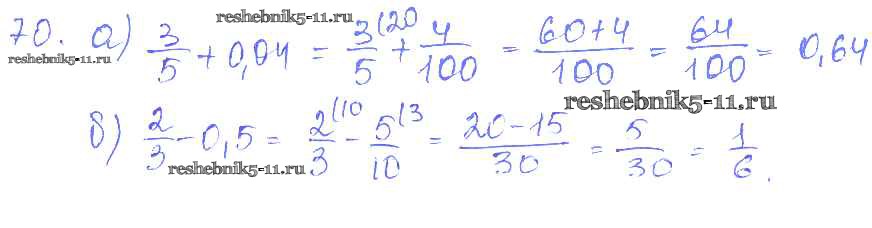 reshebnik5-11.ru
70. а) 3/5 + 0,04 = 3(20/5 + 4/100 = 60+4/100 = 64/100 = 0,64
reshebnik5-11.ru
reshebnik5-11.ru
б) 2/3 - 0,5 = 2(10/3 - 5(3/10 = 20-15/30 = 5/30 = 1/6.
reshebnik5-11.ru